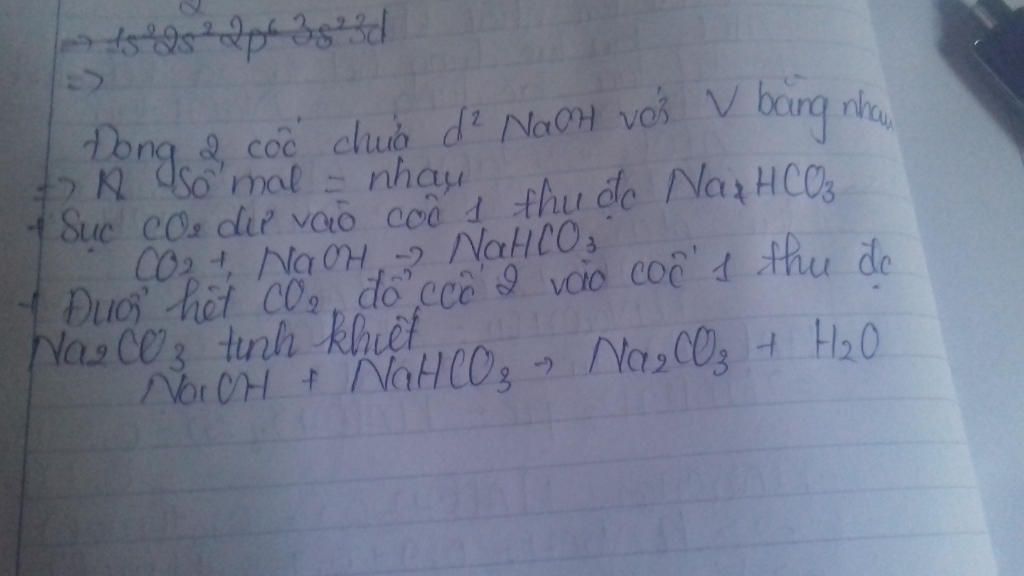 => 1s² 2s² 2p⁶ 3s² 3d
=>
Đong 2 cốc chứa d² NaOH với V bằng nhau
=> số mol = nhau
+ Sục CO₂ dư vào cốc 1 thu đc NaHCO₃
CO₂ + NaOH -> NaHCO₃
+ Đuổi hết CO₂, đổ cốc 2 vào cốc 1 thu đc
Na₂CO₃ tinh khiết
NaOH + NaHCO₃ -> Na₂CO₃ + H₂O